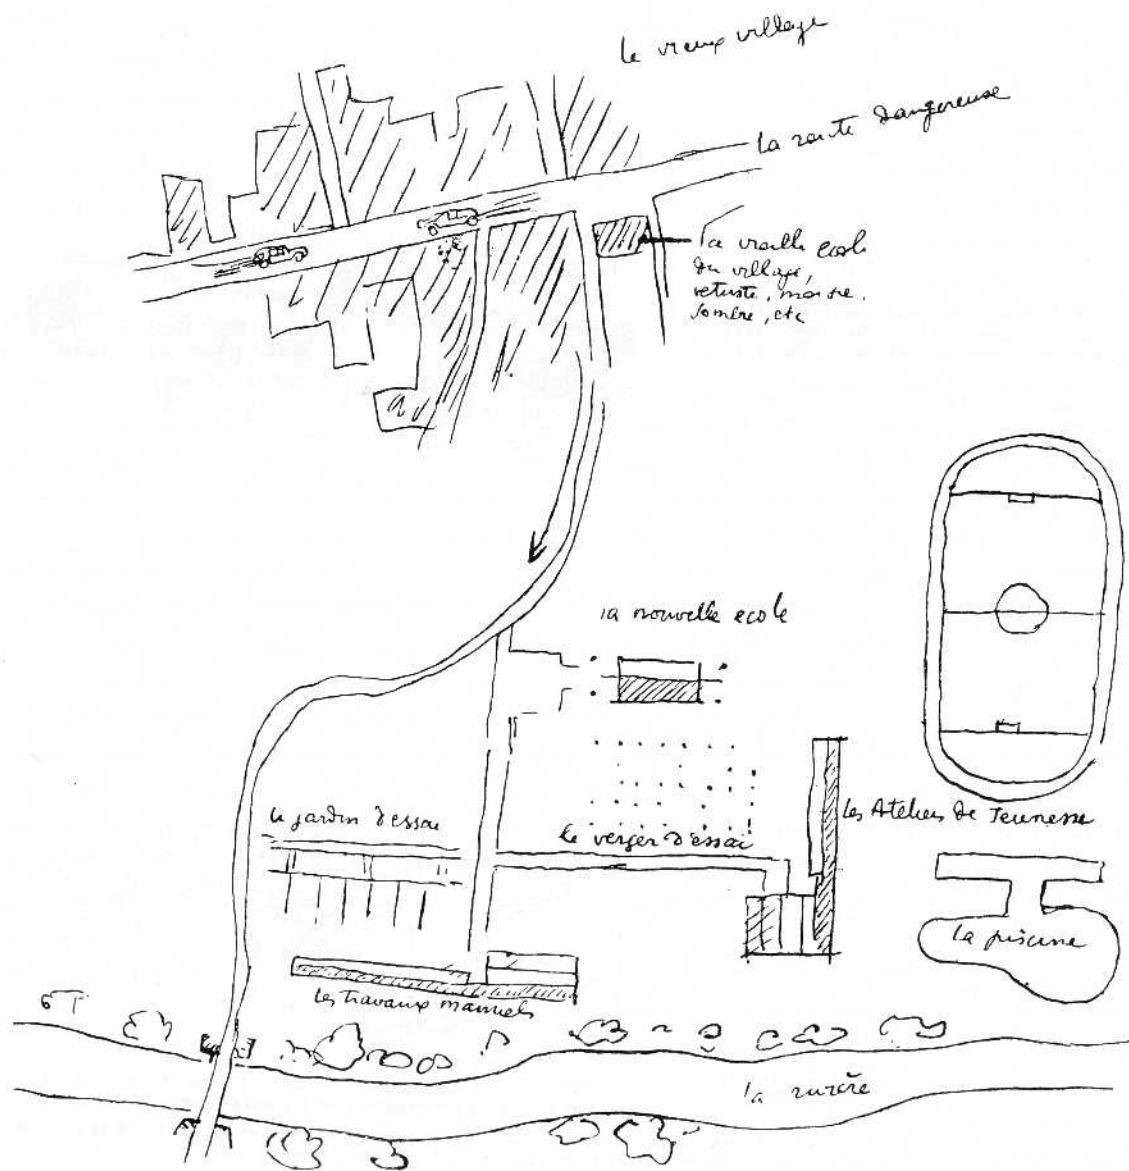 le vieux village
la route dangereuse
la vieille ecole
du village,
vetuste,
sombre, etc
la nouvelle ecole
le jardin d'essai
le verger d'essai
les Ateliers de Jeunesse
la piscine
les travaux manuels
la rivière